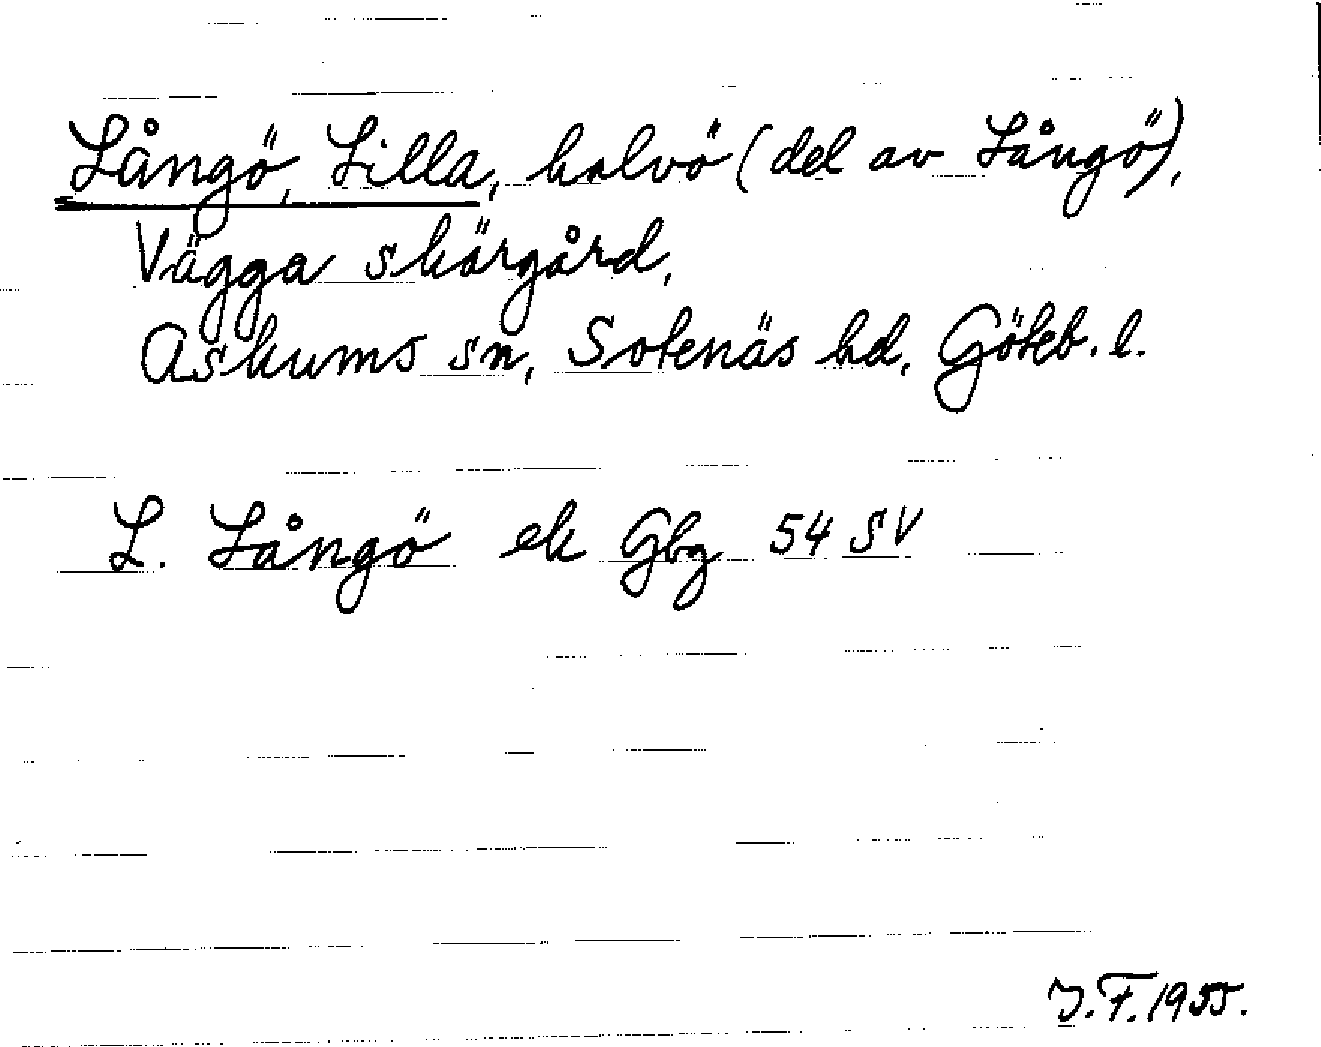 Långö, Lilla, halvö (del av Långö),
Vägga skärgård,
Askums sn, Sotenäs hd, Göteb. l.
L. Långö ek Gbg 54 SV
J.F. 1955.